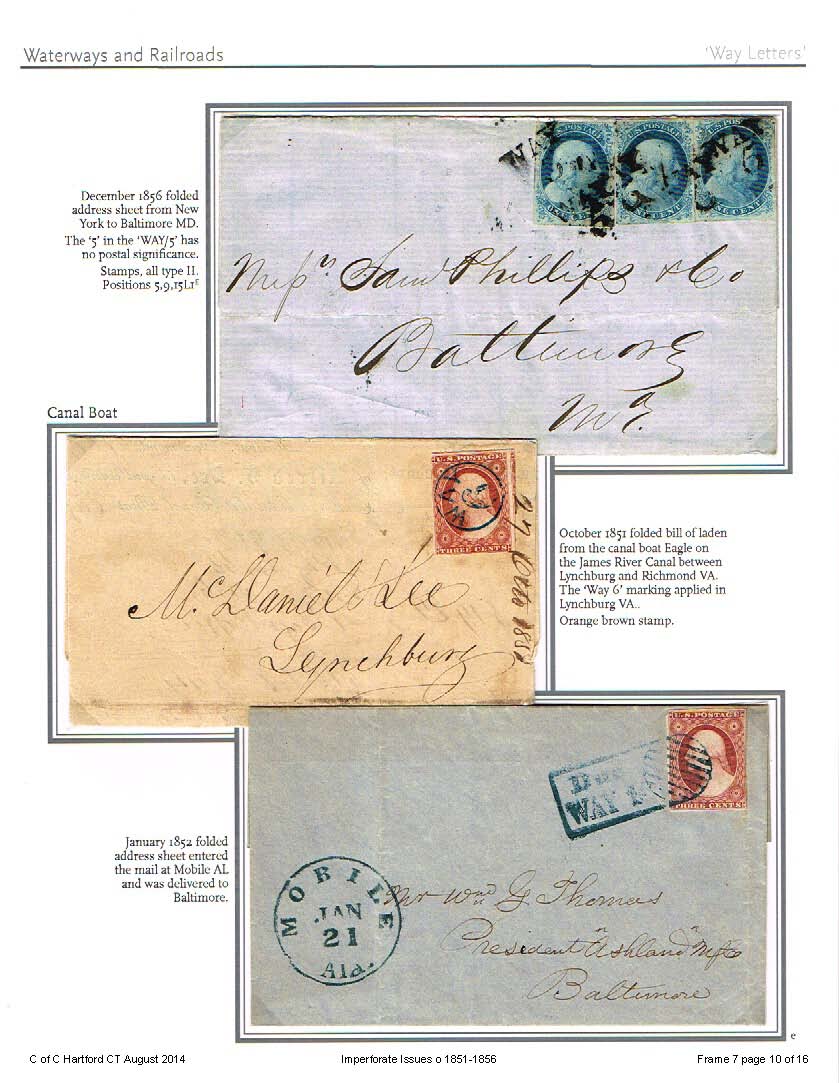 Waterways and Railroads
'Way Letters'
December 1856 folded
address sheet from New
York to Baltimore MD.
The '5' in the 'WAY/5' has
no postal significance.
Stamps, all type II.
Positions 5,9,15L1ᴱ
WAY
U.S. POSTAGE
ONE CENT
Messrs Saml Phillips & Co
Baltimore
Md.
Canal Boat
U.S. POSTAGE
WAY
6
THREE CENTS
27 Octo 1851
McDaniel & Lee
Lynchburg
October 1851 folded bill of laden
from the canal boat Eagle on
the James River Canal between
Lynchburg and Richmond VA.
The 'Way 6' marking applied in
Lynchburg VA..
Orange brown stamp.
U.S. POSTAGE
WAY
THREE CENTS
January 1852 folded
address sheet entered
the mail at Mobile AL
and was delivered to
Baltimore.
MOBILE
JAN
21
Ala.
Mr Wm G Thomas
President "Ashland" Mfg Co
Baltimore
e
C of C Hartford CT August 2014
Imperforate Issues o 1851-1856
Frame 7 page 10 of 16